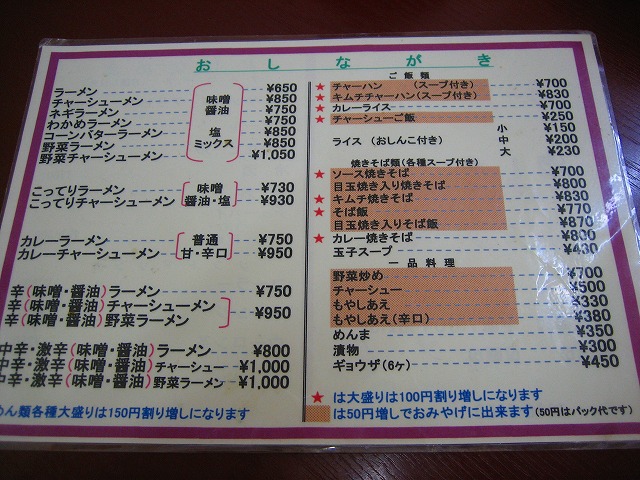 おしながき
ラーメン ¥650
チャーシューメン ¥850
ネギラーメン ¥750
わかめラーメン ¥750
コーンバターラーメン ¥850
野菜ラーメン ¥850
野菜チャーシューメン ¥1,050
味噌
醤油
塩
ミックス
こってりラーメン ¥730
こってりチャーシューメン ¥930
味噌
醤油・塩
カレーラーメン ¥750
カレーチャーシューメン ¥950
普通
甘・辛口
辛(味噌・醤油)ラーメン ¥750
辛(味噌・醤油)チャーシューメン
辛(味噌・醤油)野菜ラーメン
¥950
中辛・激辛(味噌・醤油)ラーメン ¥800
中辛・激辛(味噌・醤油)チャーシュー ¥1,000
中辛・激辛(味噌・醤油)野菜ラーメン ¥1,000
めん類各種大盛りは150円割り増しになります
ご飯類
★ チャーハン (スープ付き) ¥700
★ キムチチャーハン(スープ付き) ¥830
★ カレーライス ¥700
★ チャーシューご飯 ¥250
小 ¥150
ライス (おしんこ付き) 中 ¥200
大 ¥230
焼きそば類(各種スープ付き)
★ ソース焼きそば ¥700
目玉焼き入り焼きそば ¥800
★ キムチ焼きそば ¥830
★ そば飯 ¥770
目玉焼き入りそば飯 ¥870
★ カレー焼きそば ¥800
玉子スープ ¥430
一品料理
野菜炒め ¥700
チャーシュー ¥500
もやしあえ ¥330
もやしあえ(辛口) ¥380
めんま ¥350
漬物 ¥300
ギョウザ(6ヶ) ¥450
★ は大盛りは100円割り増しになります
は50円増しでおみやげに出来ます(50円はパック代です)